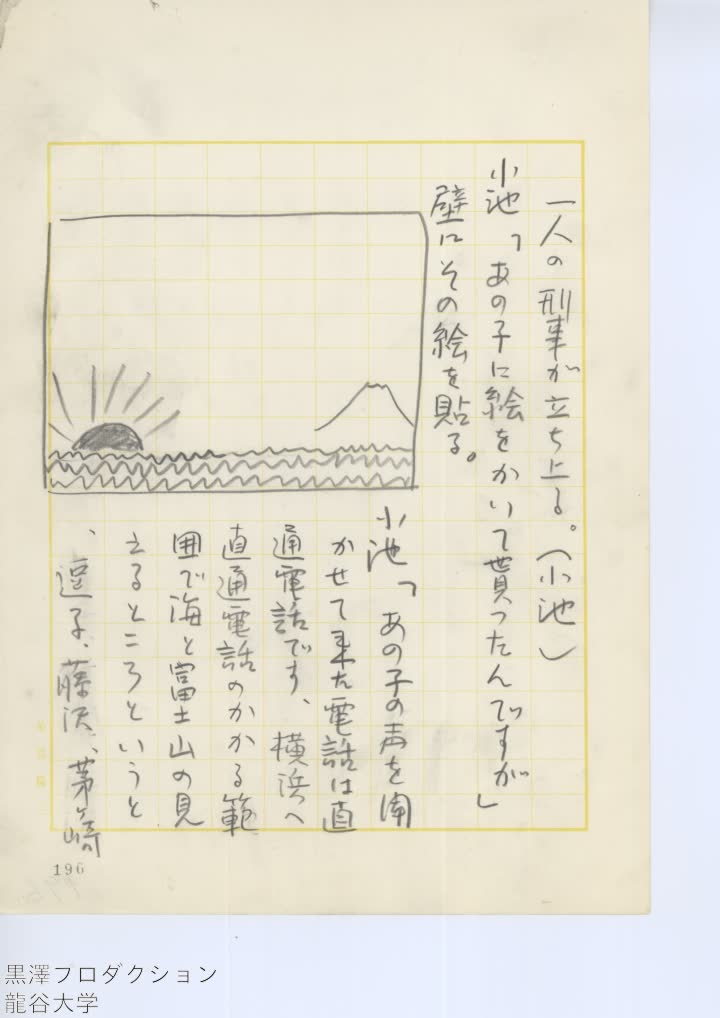 一人の刑事が立ち上る。（小池）
小池「あの子に絵をかいて貰ったんですが」
壁にその絵を貼る。
小池「あの子の声を聞
かせて来た電話は直
通電話です、横浜へ
直通電話のかかる範
囲で海と富士山の見
えるところというと
、逗子、藤沢、茅ヶ崎
196
黒澤プロダクション
龍谷大学